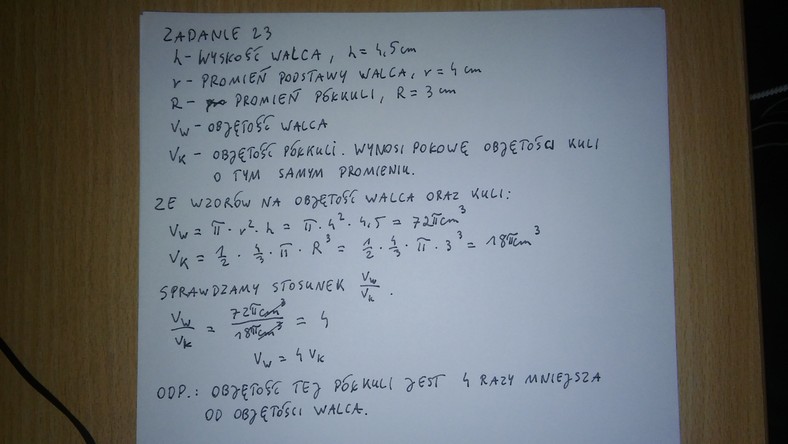 ZADANIE 23
h - WYSKOŚĆ WALCA, h = 4,5 cm
r - PROMIEŃ PODSTAWY WALCA, r = 4 cm
R - PROMIEŃ PÓŁKULI, R = 3 cm
Vw - OBJĘTOŚĆ WALCA
Vk - OBJĘTOŚĆ PÓŁKULI. WYNOSI POŁOWĘ OBJĘTOŚCI KULI
O TYM SAMYM PROMIENIU.
ZE WZORÓW NA OBJĘTOŚĆ WALCA ORAZ KULI:
Vw = π · r² · h = π · 4² · 4,5 = 72πcm³
Vk = 1/2 · 4/3 · π · R³ = 1/2 · 4/3 · π · 3³ = 18πcm³
SPRAWDZAMY STOSUNEK Vw/Vk.
Vw/Vk = 72πcm³/18πcm³ = 4
Vw = 4 Vk
ODP.: OBJĘTOŚĆ TEJ PÓŁKULI JEST 4 RAZY MNIEJSZA
OD OBJĘTOŚCI WALCA.